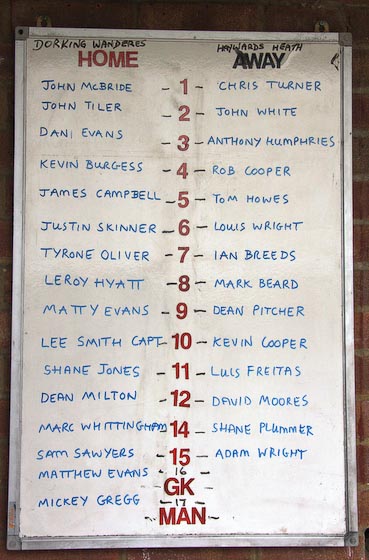 DORKING WANDERES HAYWARDS HEATH
HOME AWAY
JOHN McBRIDE - 1 - CHRIS TURNER
JOHN TILER - 2 - JOHN WHITE
DANI EVANS - 3 - ANTHONY HUMPHRIES
KEVIN BURGESS - 4 - ROB COOPER
JAMES CAMPBELL - 5 - TOM HOWES
JUSTIN SKINNER - 6 - LOUIS WRIGHT
TYRONE OLIVER - 7 - IAN BREEDS
LEROY HYATT - 8 - MARK BEARD
MATTY EVANS - 9 - DEAN PITCHER
LEE SMITH CAPT - 10 - KEVIN COOPER
SHANE JONES - 11 - LUIS FREITAS
DEAN MILTON - 12 - DAVID MOORES
MARC WHITTINGHAM - 14 - SHANE PLUMMER
SAM SAWYERS - 15 - ADAM WRIGHT
MATTHEW EVANS - 16 -
GK
MICKEY GREGG - 17 -
MAN